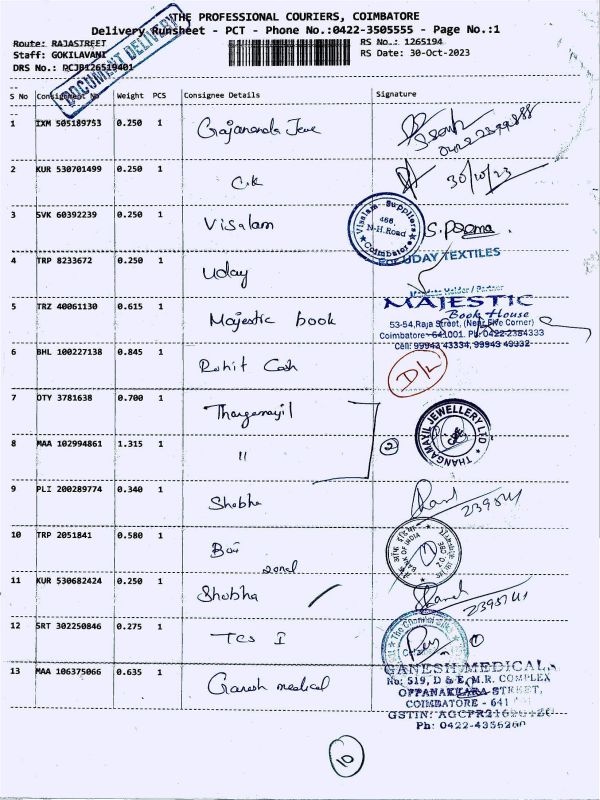 THE PROFESSIONAL COURIERS, COIMBATORE
Delivery Runsheet - PCT - Phone No.:0422-3505555 - Page No.:1
Route: RAJASTREET
RS No.: 1265194
Staff: GOKILAVANI
RS Date: 30-Oct-2023
DRS No.: PCJB126519401
DOCUMENT DELIVERY
S No Consignment No Weight PCS Consignee Details Signature
1 IXM 505189753 0.250 1
2 KUR 530701499 0.250 1 C.K 30/10/23
3 SVK 60392239 0.250 1 Visalam
Visalam Suppliers
466, N-H.Road
Coimbatore
4 TRP 8233672 0.250 1 Uday
FOR UDAY TEXTILES
5 TRZ 40061130 0.615 1 Majestic book
MAJESTIC
Book House
53-54, Raja Street, (Near Five Corner)
Coimbatore - 641001. Ph: 0422-2384333
Cell: 99943 43334, 99943 49332
6 BHL 100227138 0.845 1 Rohit Cash D/L
7 OTY 3781638 0.700 1 Thangamayil
THANGAMAYIL JEWELLERY LTD
8 MAA 102994861 1.315 1 " 2
9 PLI 200289774 0.340 1 Shobha
10 TRP 2051841 0.580 1 BOI
zonal
BANK OF INDIA
11 KUR 530682424 0.250 1 Shobha
12 SRT 302250846 0.275 1 TCS I
13 MAA 106375066 0.635 1 Ganesh medical
GANESH MEDICALS
No: 519, D & E, M.R. COMPLEX
OPPANAKKARA STREET,
COIMBATORE - 641
Ph: 0422-
10